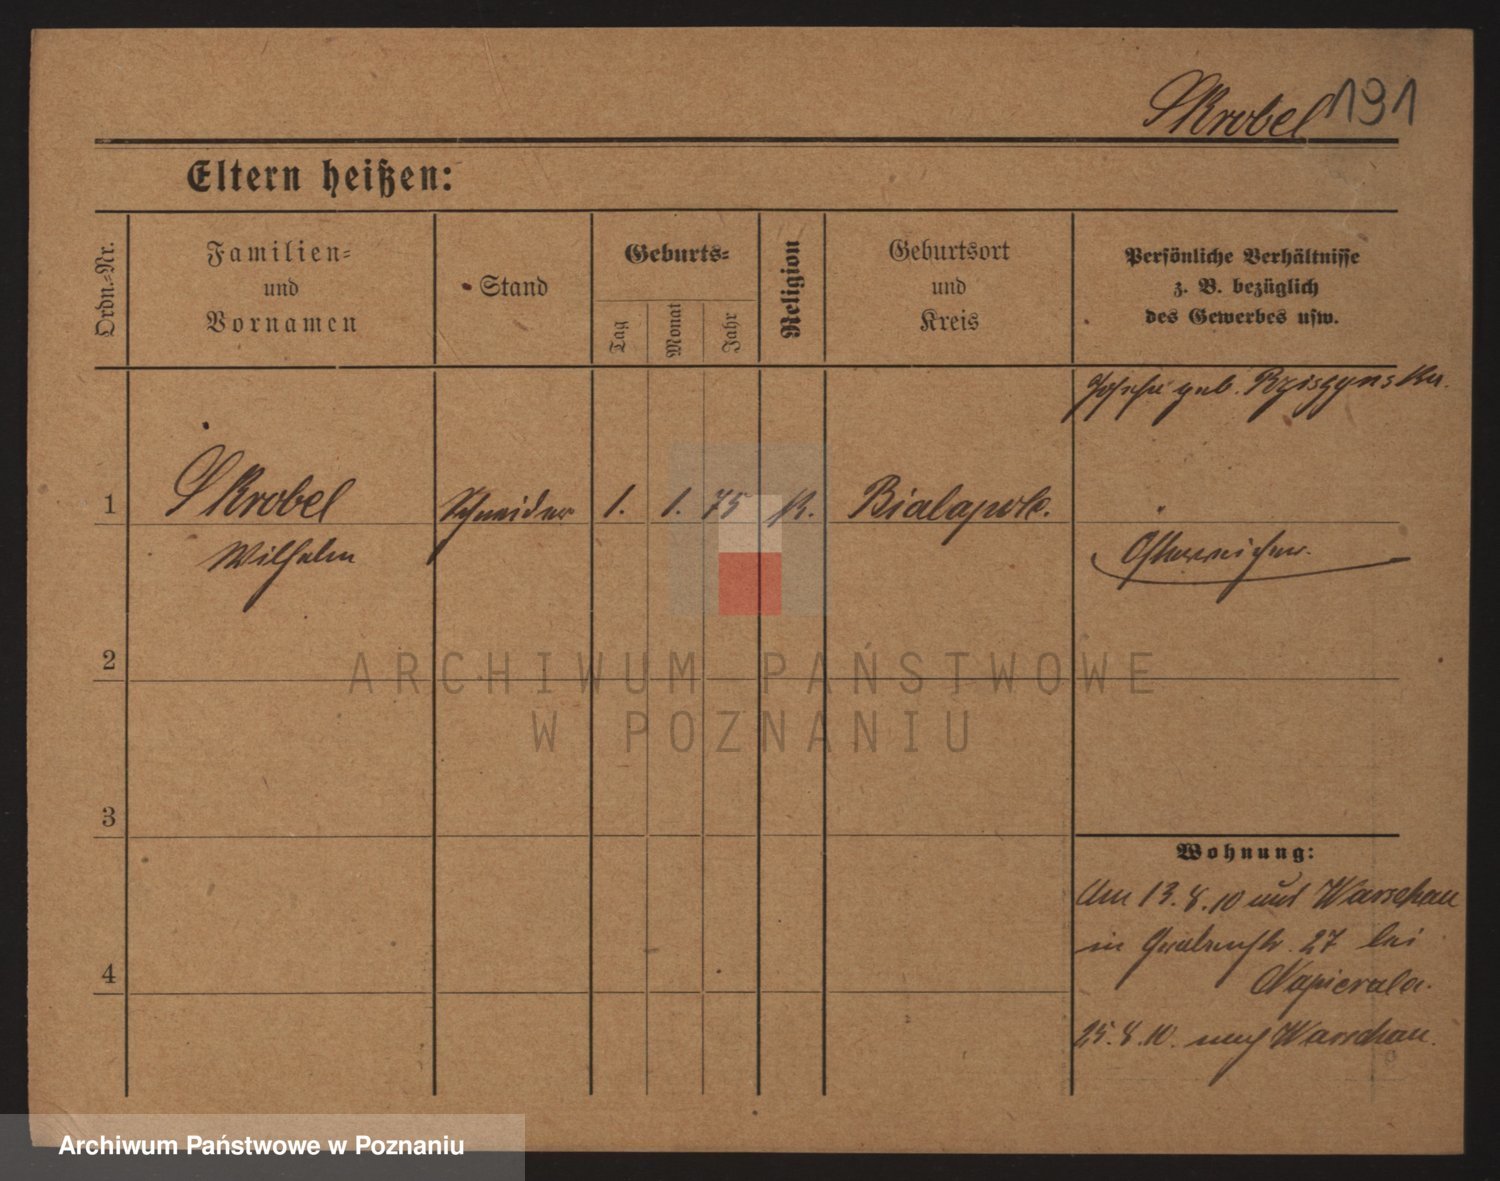 Skrobel 191
Eltern heißen:
Ordn.=Nr.
Familien=
und
Vornamen
Stand
Geburts=
Tag
Monat
Jahr
Religion
Geburtsort
und
Kreis
Persönliche Verhältnisse
z. B. bezüglich
des Gewerbes usw.
geb.
1 Skrobel Schneider 1. 1. 75 K. Bialapole.
Wilhelm
Österreicher.
2
ARCHIWUM PAŃSTWOWE
W POZNANIU
3
Wohnung:
Am 13.8.10 aus Warschau
in Grabenstr. 27 bei
Napierala.
4
25.8.10. nach Warschau.
Archiwum Państwowe w Poznaniu